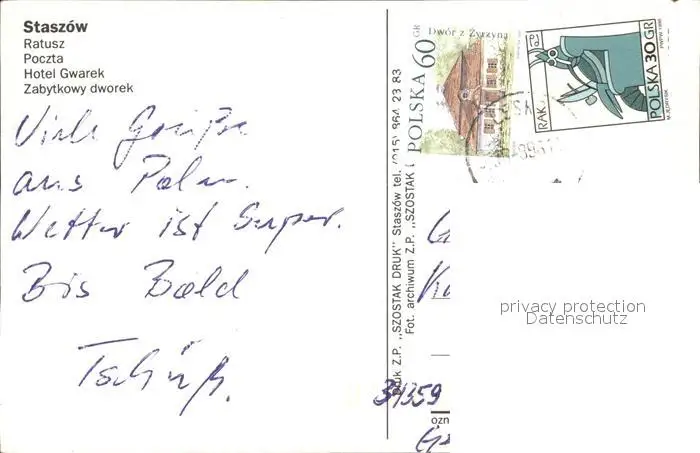 Staszów
Ratusz
Poczta
Hotel Gwarek
Zabytkowy dworek
Viele Grüße
aus Polen.
Wetter ist Super.
Bis Bald
Tschüß.
Druk Z.P. „SZOSTAK DRUK" Staszów tel. (015) 864 23 83
Fot. archiwum Z.P. „SZOSTAK
POLSKA 60 GR
Dwór z Żyrzyna
RAK
POLSKA 30 GR
34359
privacy protection
Datenschutz